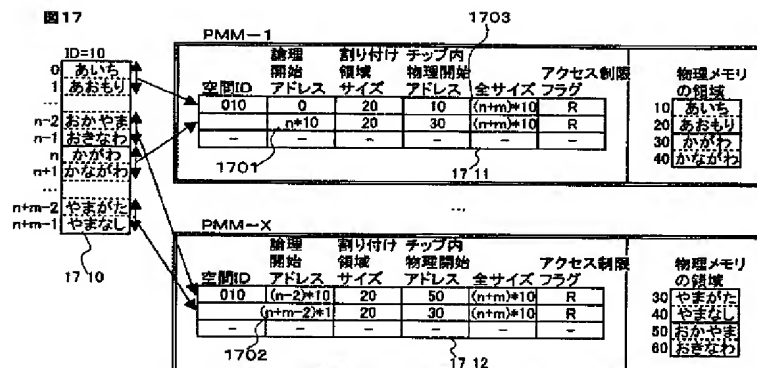 図17
ID=10
0 あいち
1 あおもり
...
n-2 おかやま
n-1 おきなわ
n かがわ
n+1 かながわ
...
n+m-2 やまがた
n+m-1 やまなし
1710
PMM-1
1703
空間ID 論理開始アドレス 割り付け領域サイズ チップ内物理開始アドレス 全サイズ アクセス制限フラグ
010 0 20 10 (n+m)*10 R
n*10 20 30 (n+m)*10 R
- - - - - -
1701
1711
物理メモリの領域
10 あいち
20 あおもり
30 かがわ
40 かながわ
...
PMM-X
空間ID 論理開始アドレス 割り付け領域サイズ チップ内物理開始アドレス 全サイズ アクセス制限フラグ
010 (n-2)*10 20 50 (n+m)*10 R
(n+m-2)*1 20 30 (n+m)*10 R
- - - - - -
1702
1712
物理メモリの領域
30 やまがた
40 やまなし
50 おかやま
60 おきなわ